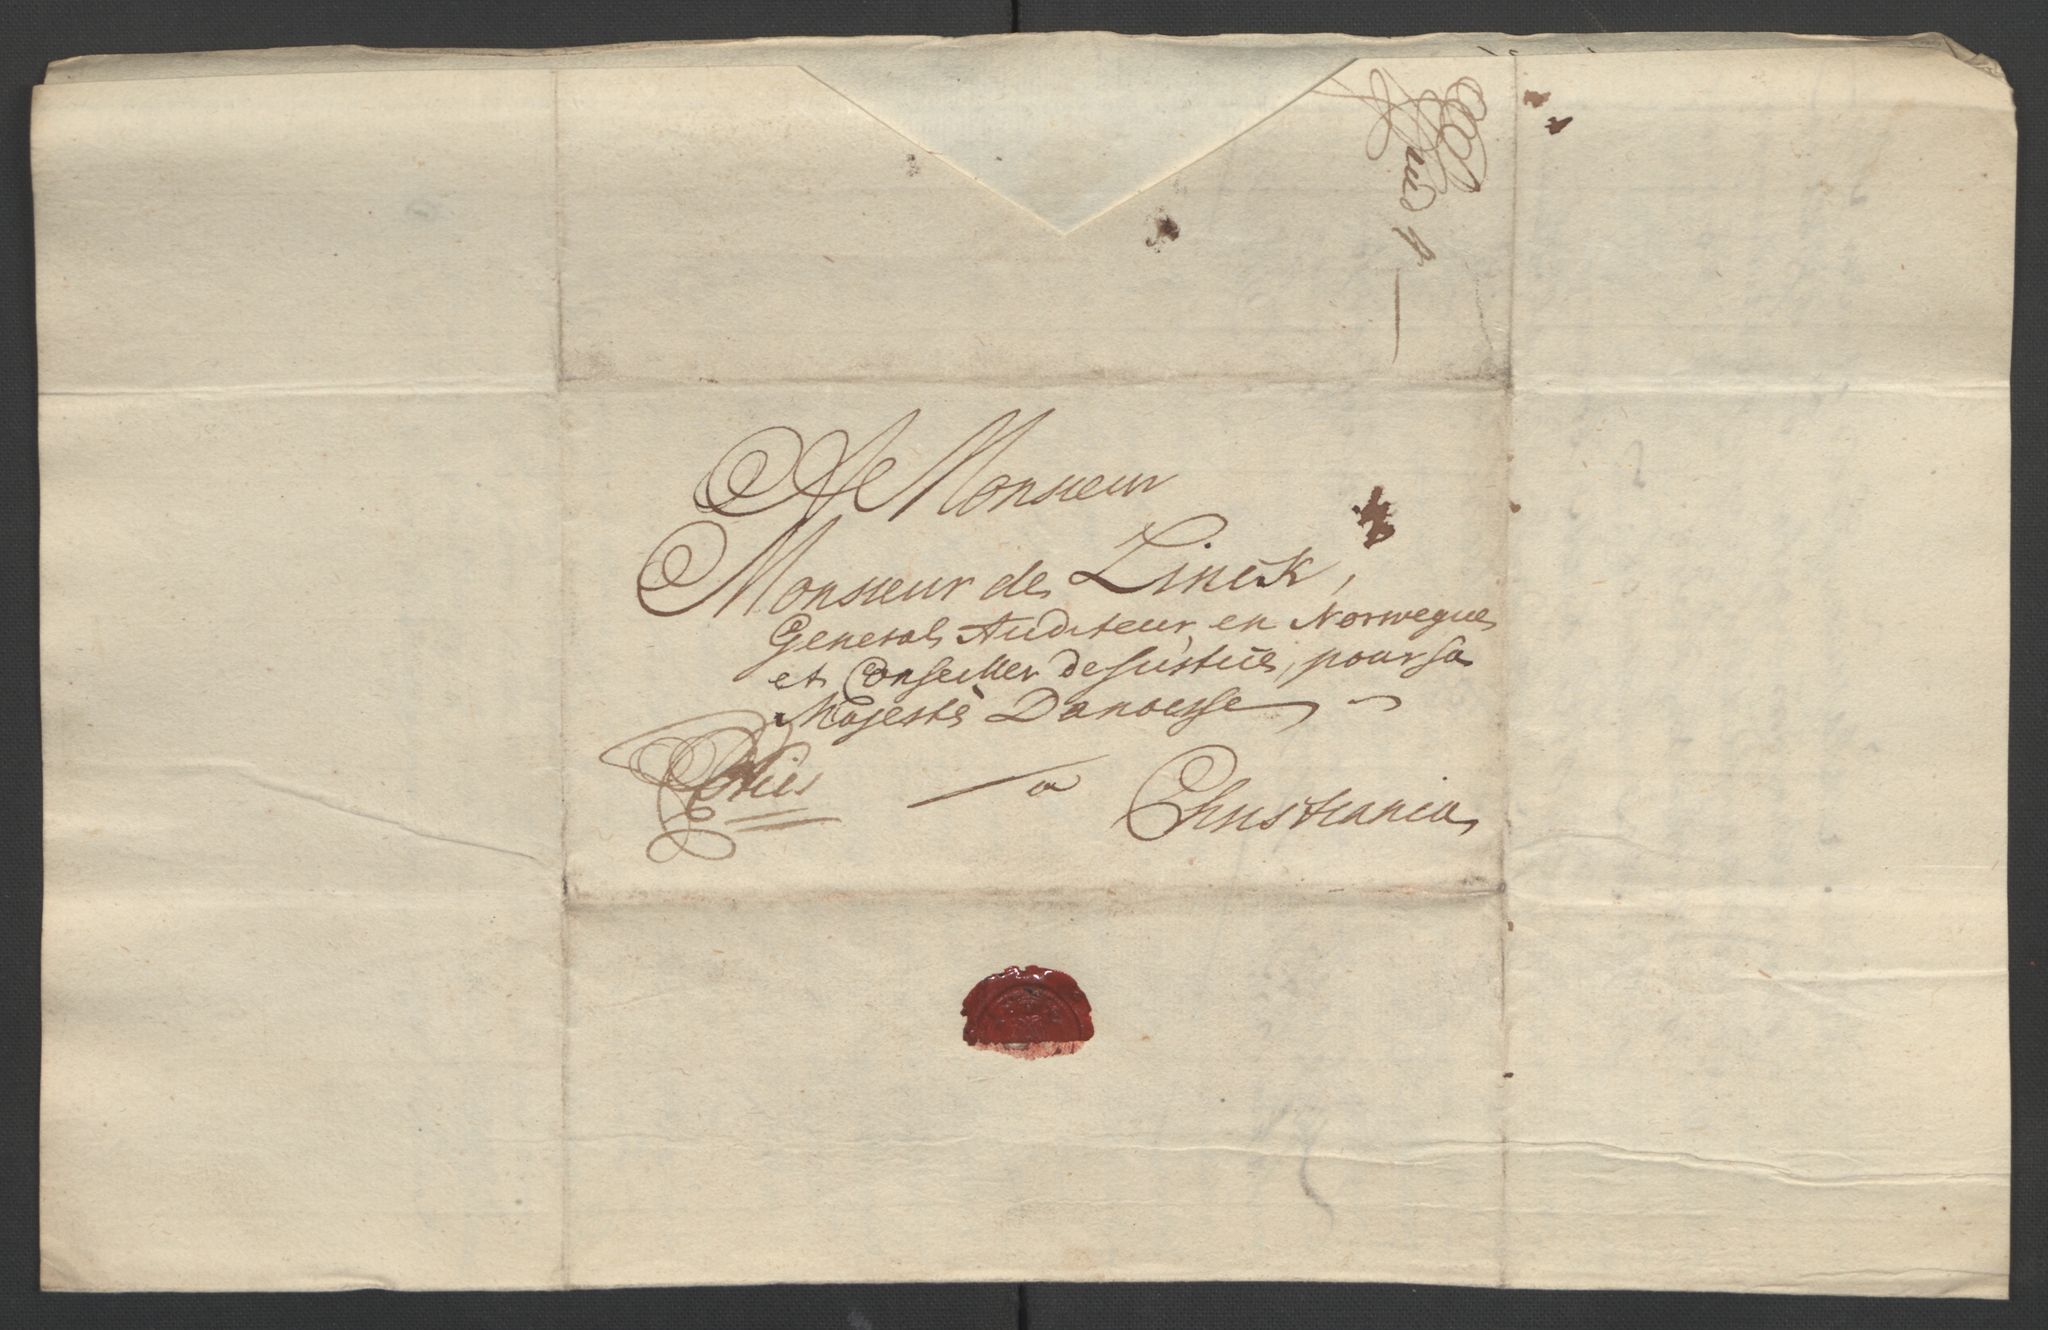 A Monsieur
Monsieur de Linck,
General Auditeur en Norwegue
et Conseiller de Justice, pour sa
Majestè Danoisse
a Christiania